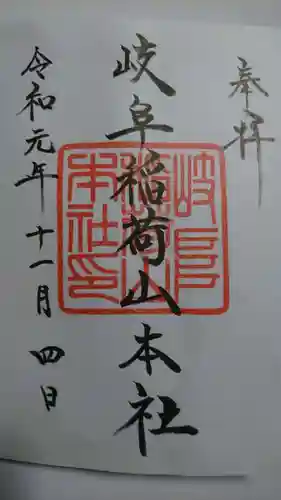 奉拝
岐阜稲荷山本社
令和元年十一月四日
岐阜
稲荷山
本社印